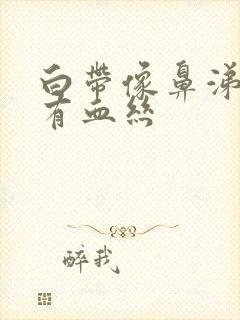 白帶像鼻涕
有血絲
醉我